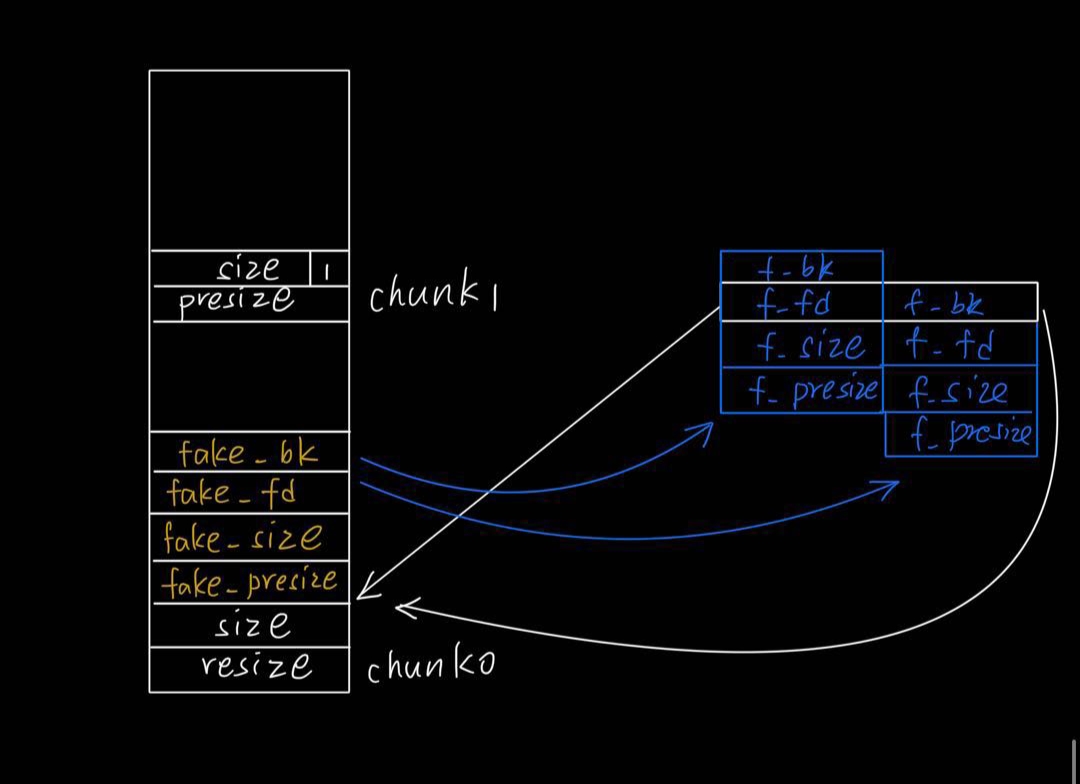 size 1
presize
chunk1
fake_bk
fake_fd
fake_size
fake_presize
size
resize
chunk0
f_bk
f_fd f_bk
f_size f_fd
f_presize f_size
f_presize